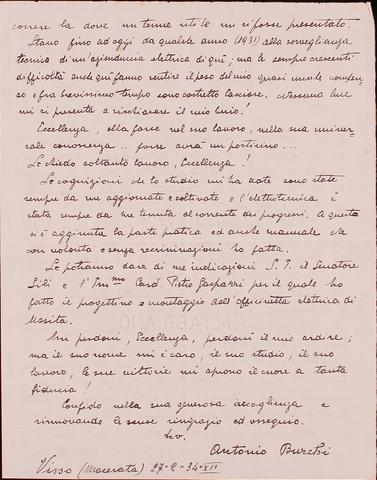 correre la dove un terreno utile mi si fosse presentato.
Stano fino ad oggi da qualche anno (1931) alla sorveglianza
tecnica di un'azienduccia elettrica di qui; ma le sempre crescenti
difficoltà anche qui fanno sentire il peso del mio quasi inutile compen-
so e fra brevissimo tempo sono costretto lasciare. Nessuna luce
mi si presenta a rischiarare il mio buio!
Eccellenza, ella forse nel suo lavoro, nella sua univer-
cale conoscenza ... forse avrà un posticino ...
Le chiedo soltanto lavoro, Eccellenza!
Le cognizioni che lo studio mi ha date sono state
sempre da me aggiornate e coltivate e l'elettrotecnica è
stata sempre da me tenuta al corrente dei progressi. A questa
si è aggiunta la parte pratica ed anche manuale che
con volontà e senza recriminazioni ho fatta.
Le potranno dare di me indicazioni S. E. il Senatore
Sili e l'Em.mo Card. Pietro Gasparri per il quale ho
fatto il progettino e montaggio dell'officinetta elettrica di
Ussita.
Mi perdoni, Eccellenza, perdoni il mio ardire;
ma il suo nome mi è caro, il suo studio, il suo
lavoro, le sue vittorie mi aprono il cuore a tanta
fiducia!
Confido nella sua generosa accoglienza e
rinnovando le scuse ringrazio ed ossequio.
Antonio Burchi
Visso (Macerata) 27-2-34-XII